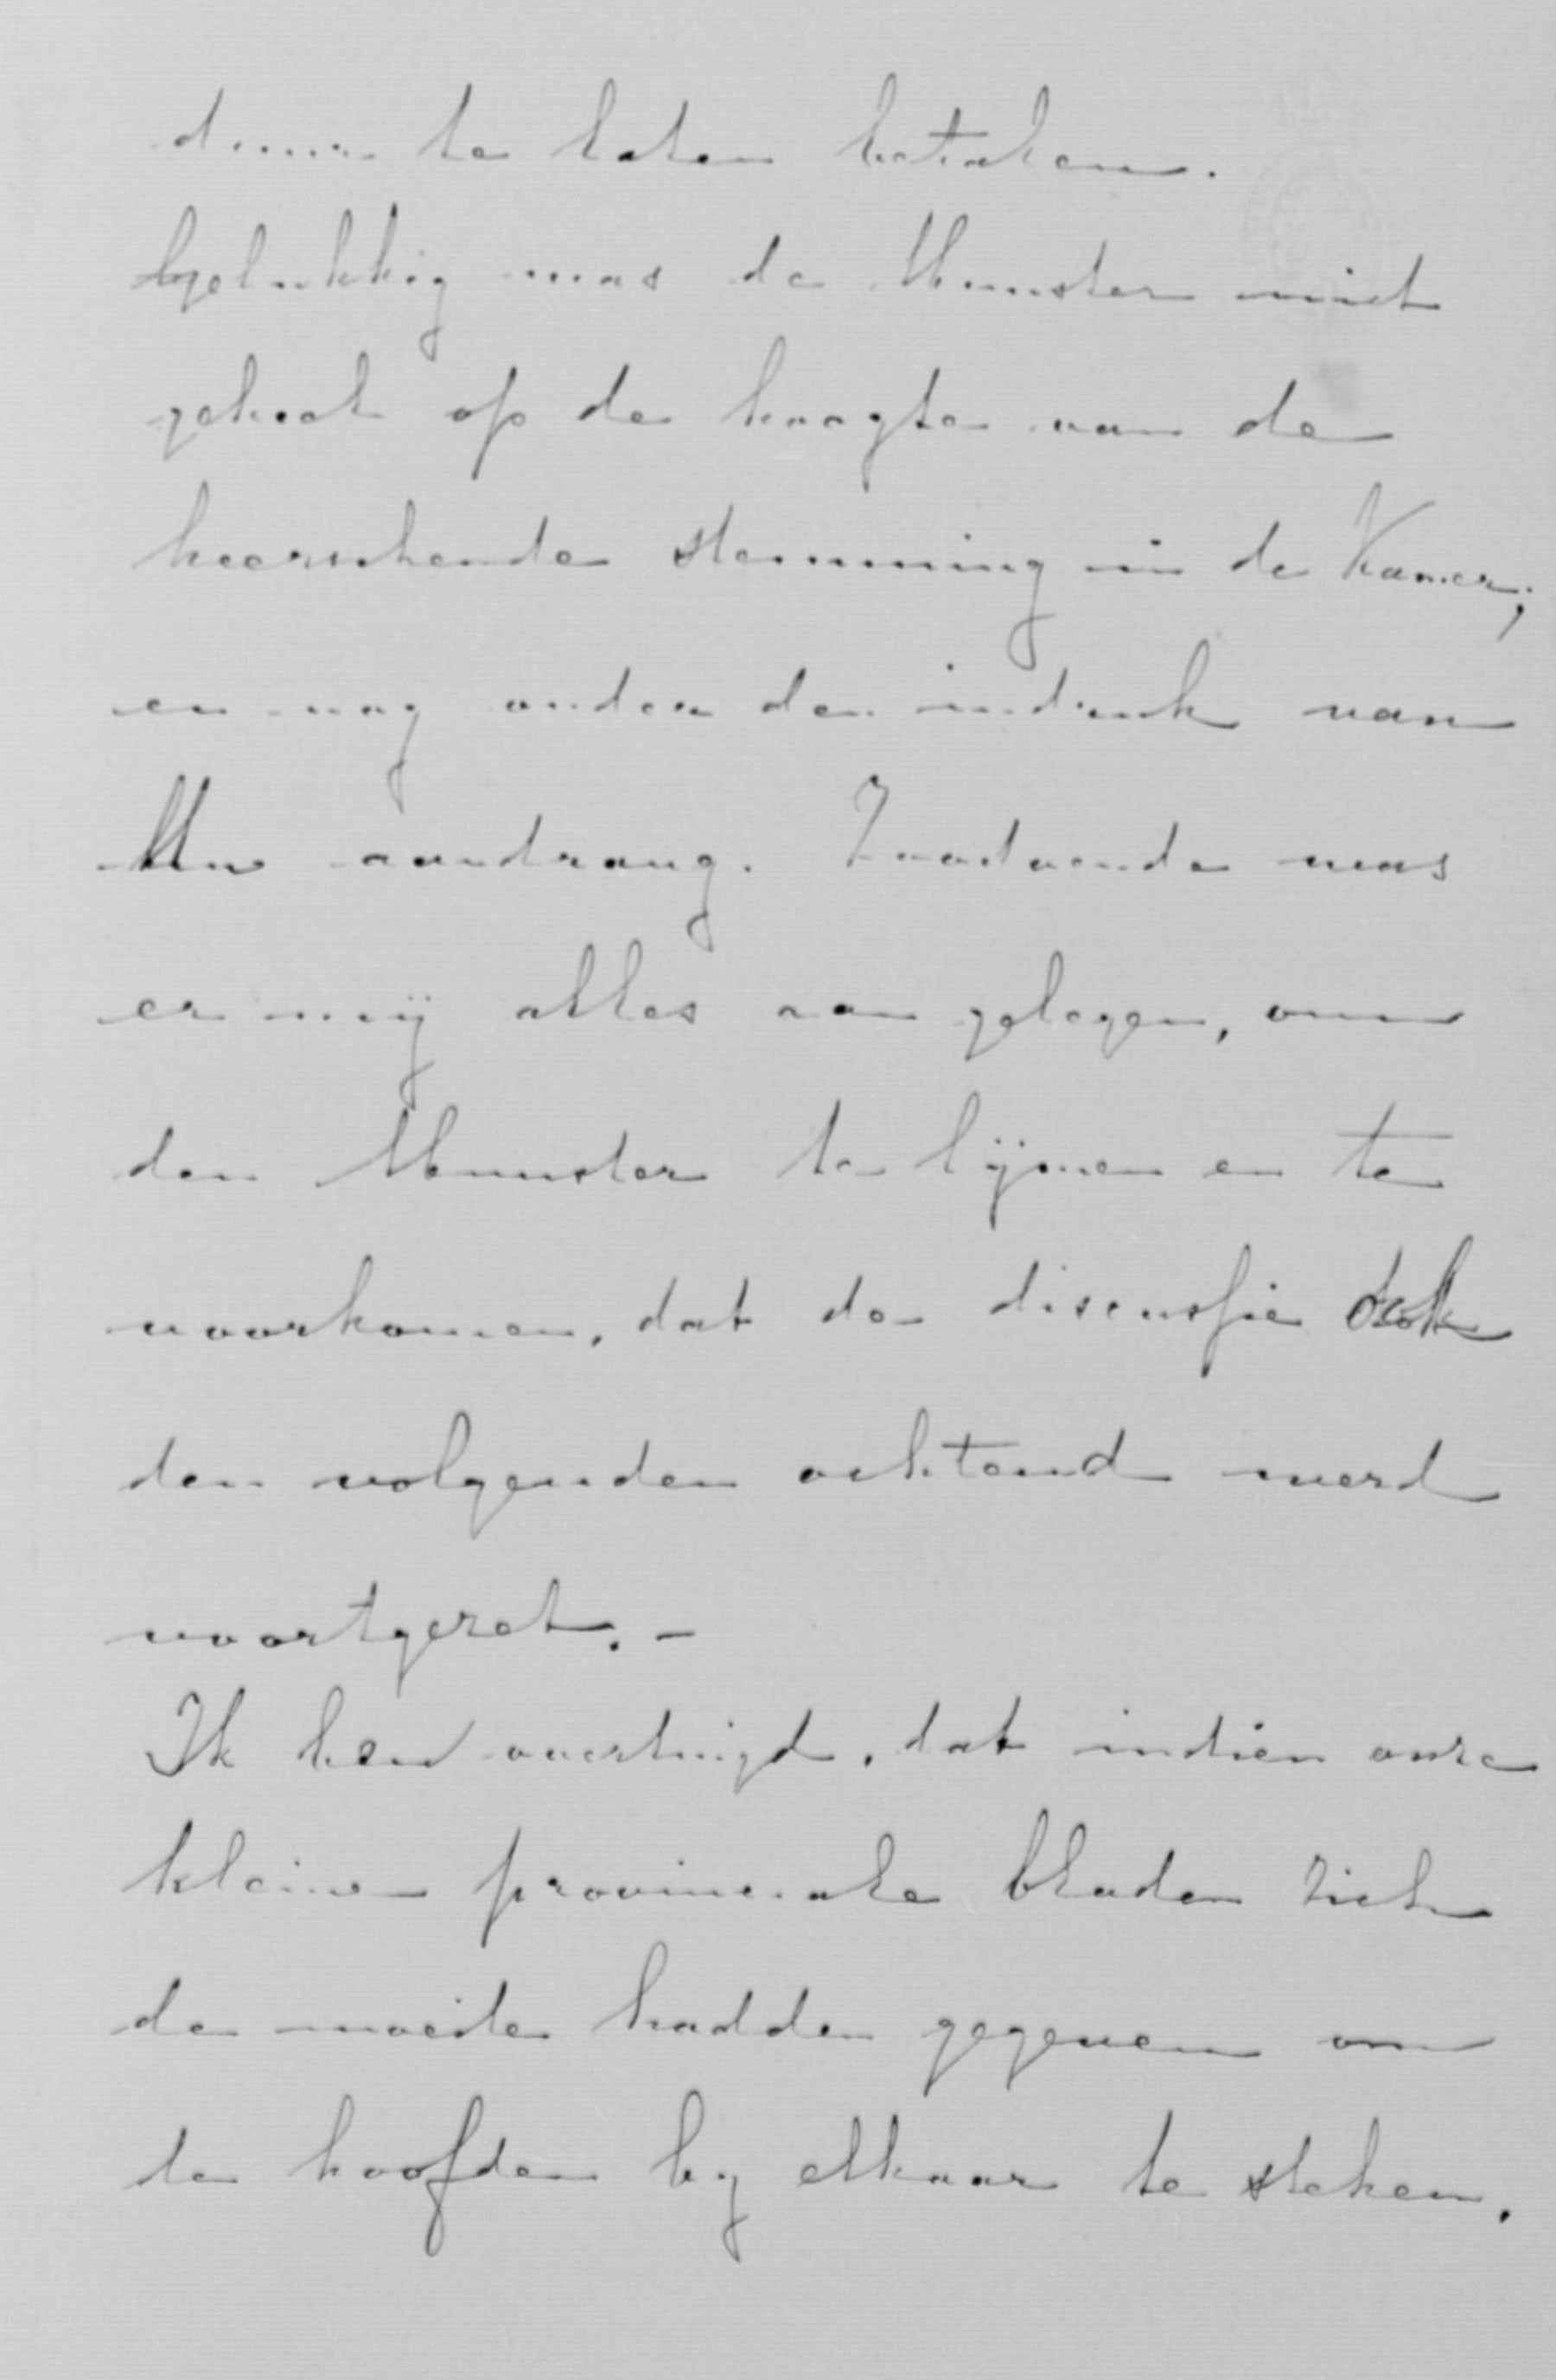 te laten betalen.
Gelukkig was de Minister niet
geheel op de hoogte van de
heerschende stemming in de Kamer;
en nog onder den indruk van
Uw aandrang. Zoodoende was
er mij alles aan gelegen, om
den Minister te lijmen en te
voorkomen, dat de discussie
den volgenden ochtend werd
voortgezet. -
Ik ben overtuigd, dat indien onze
kleine provinciale bladen zich
de moeite hadden gegeven om
de hoofden bij elkaar te steken,